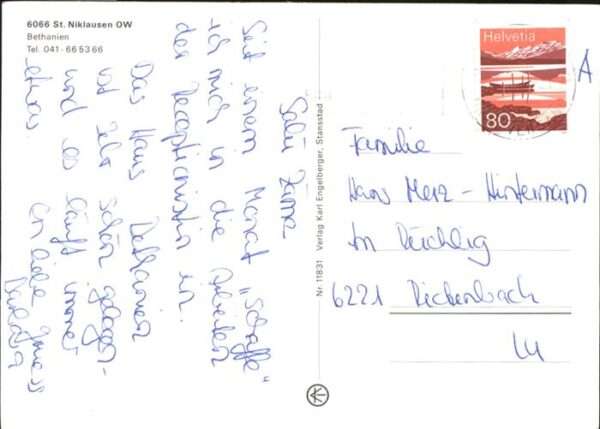 6066 St. Niklausen OW
Bethanien
Tel. 041-66 53 66
Salü Zäme
Seit einem Monat "schaffe"
ich mich in die Arbeiten
der Receptionistin ein.
Das Haus Bethanien
ist sehr schön gelegen
und es läuft immer
etwas
En liebe Gruess
Nr. 11831 Verlag Karl Engelberger, Stansstad
Helvetia
80
A
Familie
Hans Merz-Hintermann
6221 Rickenbach
LU